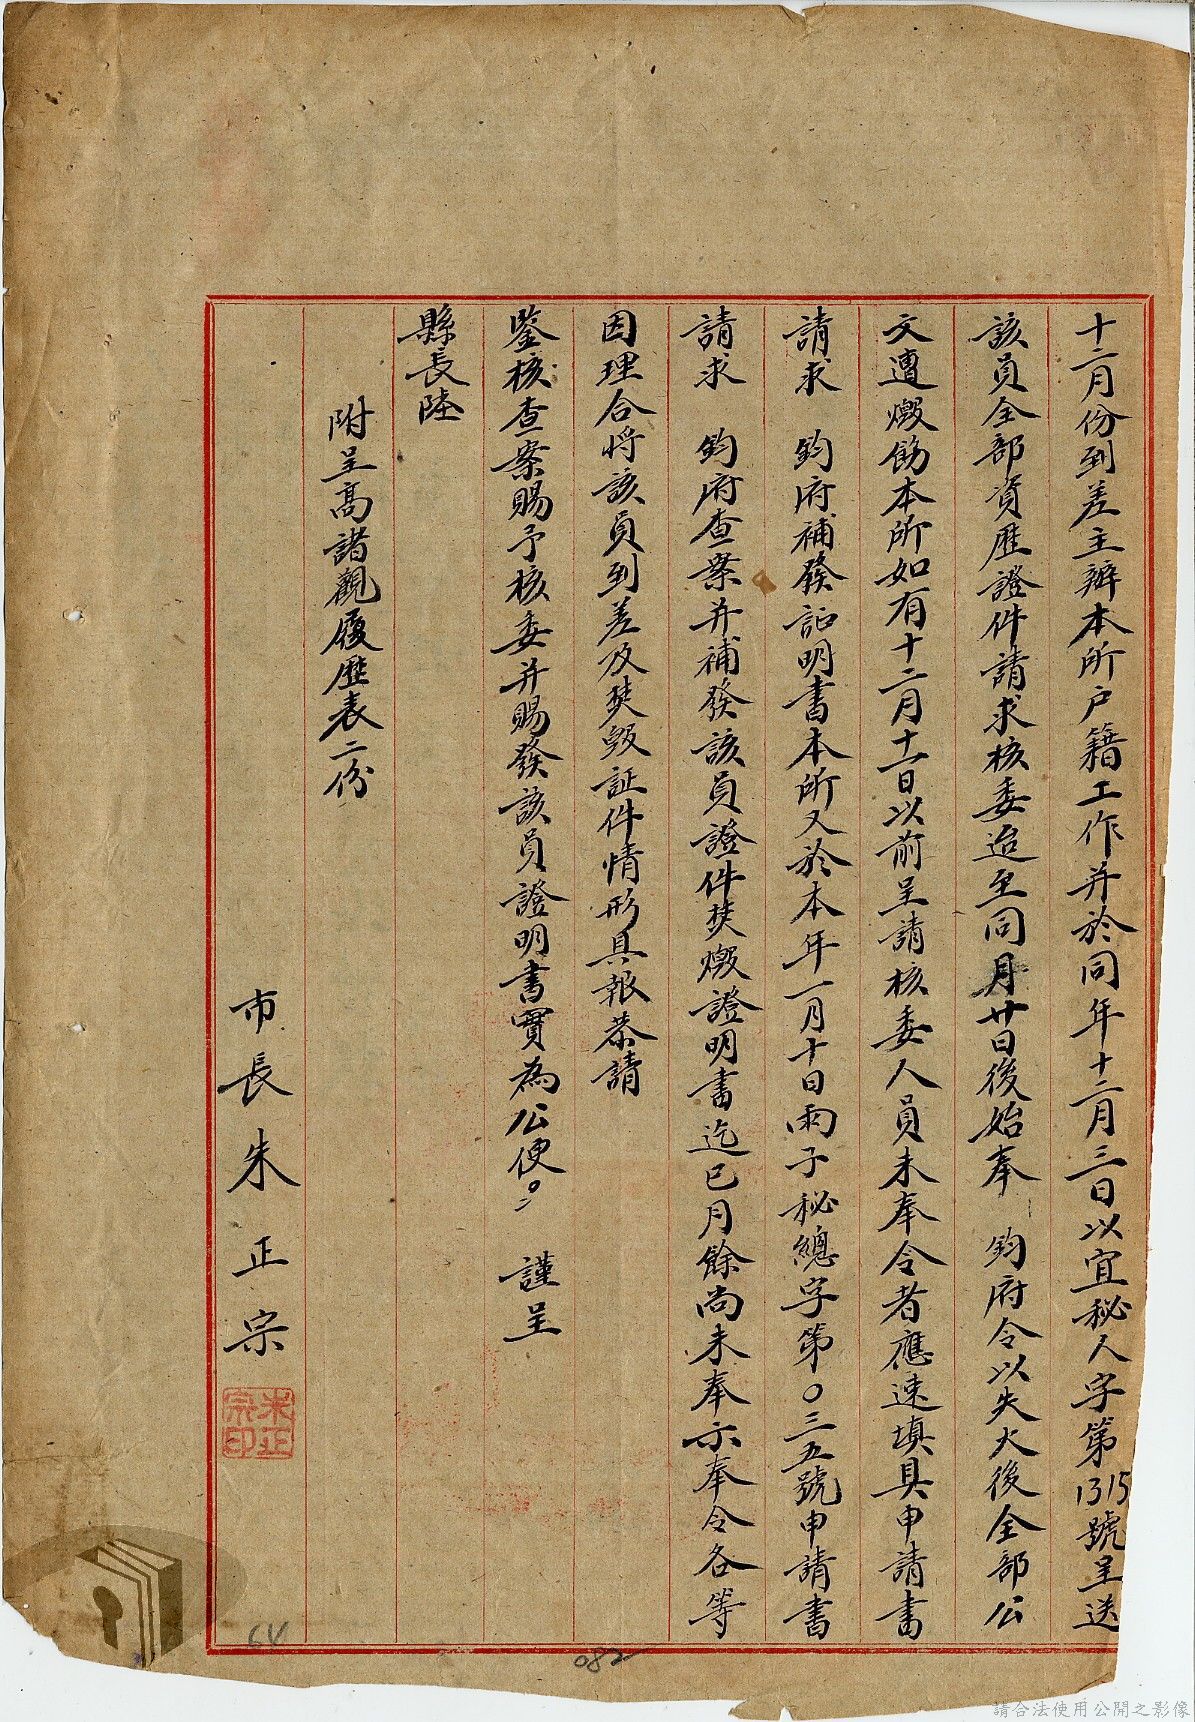 十二月份到差主辦本所户籍工作并於同年十二月三日以宜秘人字第1315號呈送
該員全部資歷證件請求核委迨至同月廿日後始奉　鈞府令以失火後全部公
文遭燬飭本所如有十二月十一日以前呈請核委人員未奉令者應速填具申請書
請求　鈞府補發証明書本所又於本年一月十日雨子秘總字第〇三五號申請書
請求　鈞府查案并補發該員證件焚燬證明書迄已月餘尚未奉示奉令各等
因理合將該員到差及焚毀証件情形具報恭請
鑒核查案賜予核委并賜發該員證明書實為公便。　謹呈
縣長陸
附呈高諸觀履歷表二份
市長朱正宗
朱正宗印
64
082
請合法使用公開之影像